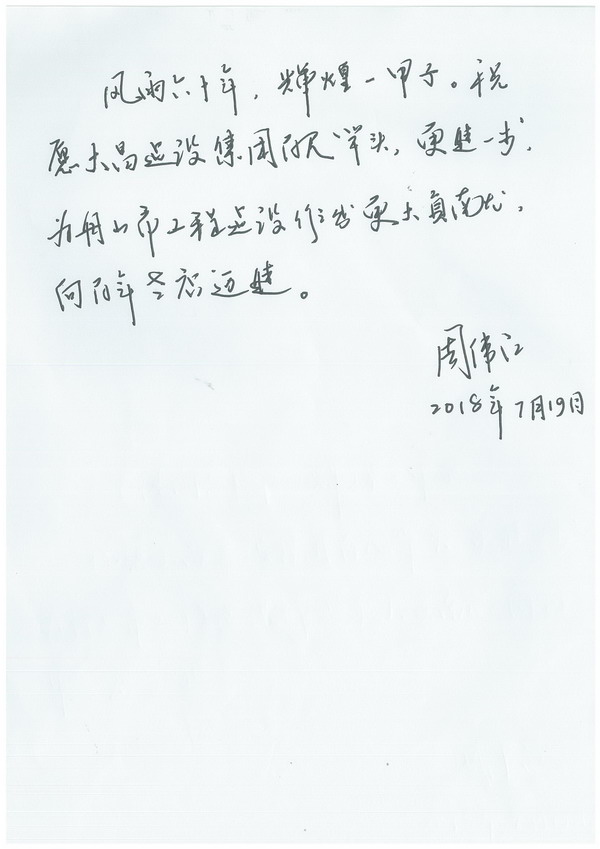 风雨六十年，辉煌一甲子。祝
愿大昌建设集团“百尺竿头，更进一步”，
为舟山市工程建设作出更大贡献，
向百年老店迈进。
周伟江
2018年7月19日